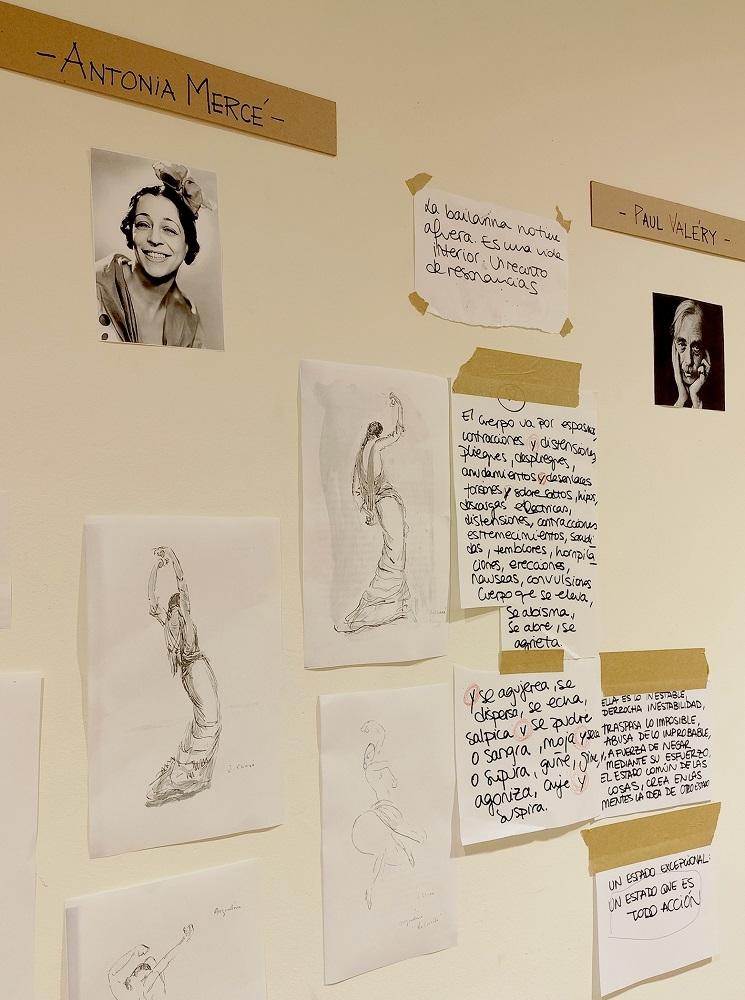 - ANTONIA MERCÉ -
La bailarina no tiene
afuera. Es una vida
interior. Un recinto
de resonancias
- PAUL VALÉRY -
El cuerpo va por espasmos,
contracciones y distensiones,
pliegues, despliegues,
anudamientos y desenlaces
torsiones y sobresaltos, hipos,
descargas eléctricas,
distensiones, contracciones
estremecimientos, sacudi
das, temblores, horripila
ciones, erecciones,
nauseas, convulsiones
Cuerpo que se eleva,
se abisma,
se abre, se
agrieta.
y se agujerea, se
dispersa, se echa,
salpica y se pudre
o sangra, moja y seca
o supura, gruñe, gime,
agoniza, cruje y
suspira.
ELLA ES LO INESTABLE,
DERROCHA INESTABILIDAD,
TRASPASA LO IMPOSIBLE,
ABUSA DE LO IMPROBABLE,
Y, A FUERZA DE NEGAR
MEDIANTE SU ESFUERZO,
EL ESTADO COMÚN DE LAS
COSAS, CREA EN LAS
MENTES LA IDEA DE OTRO ESTADO
UN ESTADO EXCEPCIONAL:
UN ESTADO QUE ES
TODO ACCIÓN